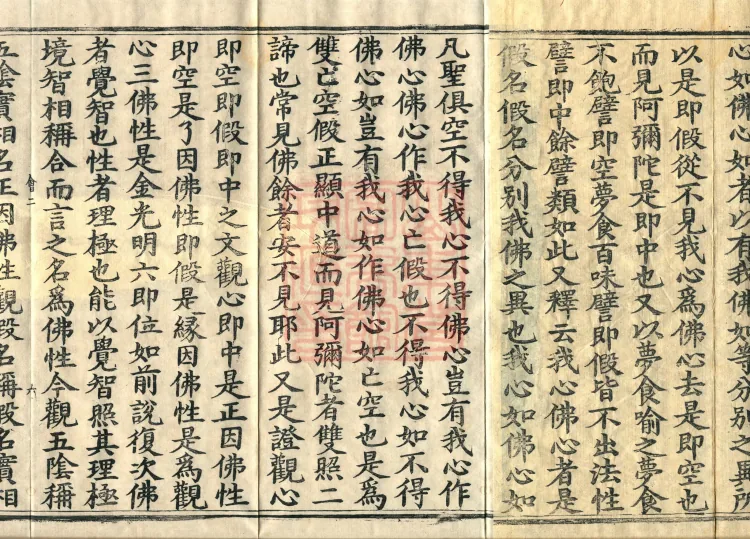 心如佛心如者以有佛如等分別之異所
以是即假從不見我心爲佛心去是即空也
而見阿彌陀是即中也又以夢食喻之夢食
不飽譬即空夢食百味譬即假皆不出法性
譬即中餘譬類如此又釋云我心佛心者是
假名假名分別我佛之異也我心如佛心如
凡聖俱空不得我心不得佛心豈有我心作
佛心佛心作我心亡假也不得我心如不得
佛心如豈有我心如作佛心如亡空也是爲
雙亡空假正顯中道而見阿彌陀者雙照二
諦也常見佛餘者安不見耶此又是證觀心
即空即假即中之文觀心即中是正因佛性
即空是了因佛性即假是緣因佛性是爲觀
心三佛性是金光明六即位如前說復次佛
者覺智也性者理極也能以覺智照其理極
境智相稱合而言之名爲佛性今觀五陰稱
會二 六
五陰實相名正因佛性觀假名稱假名實相